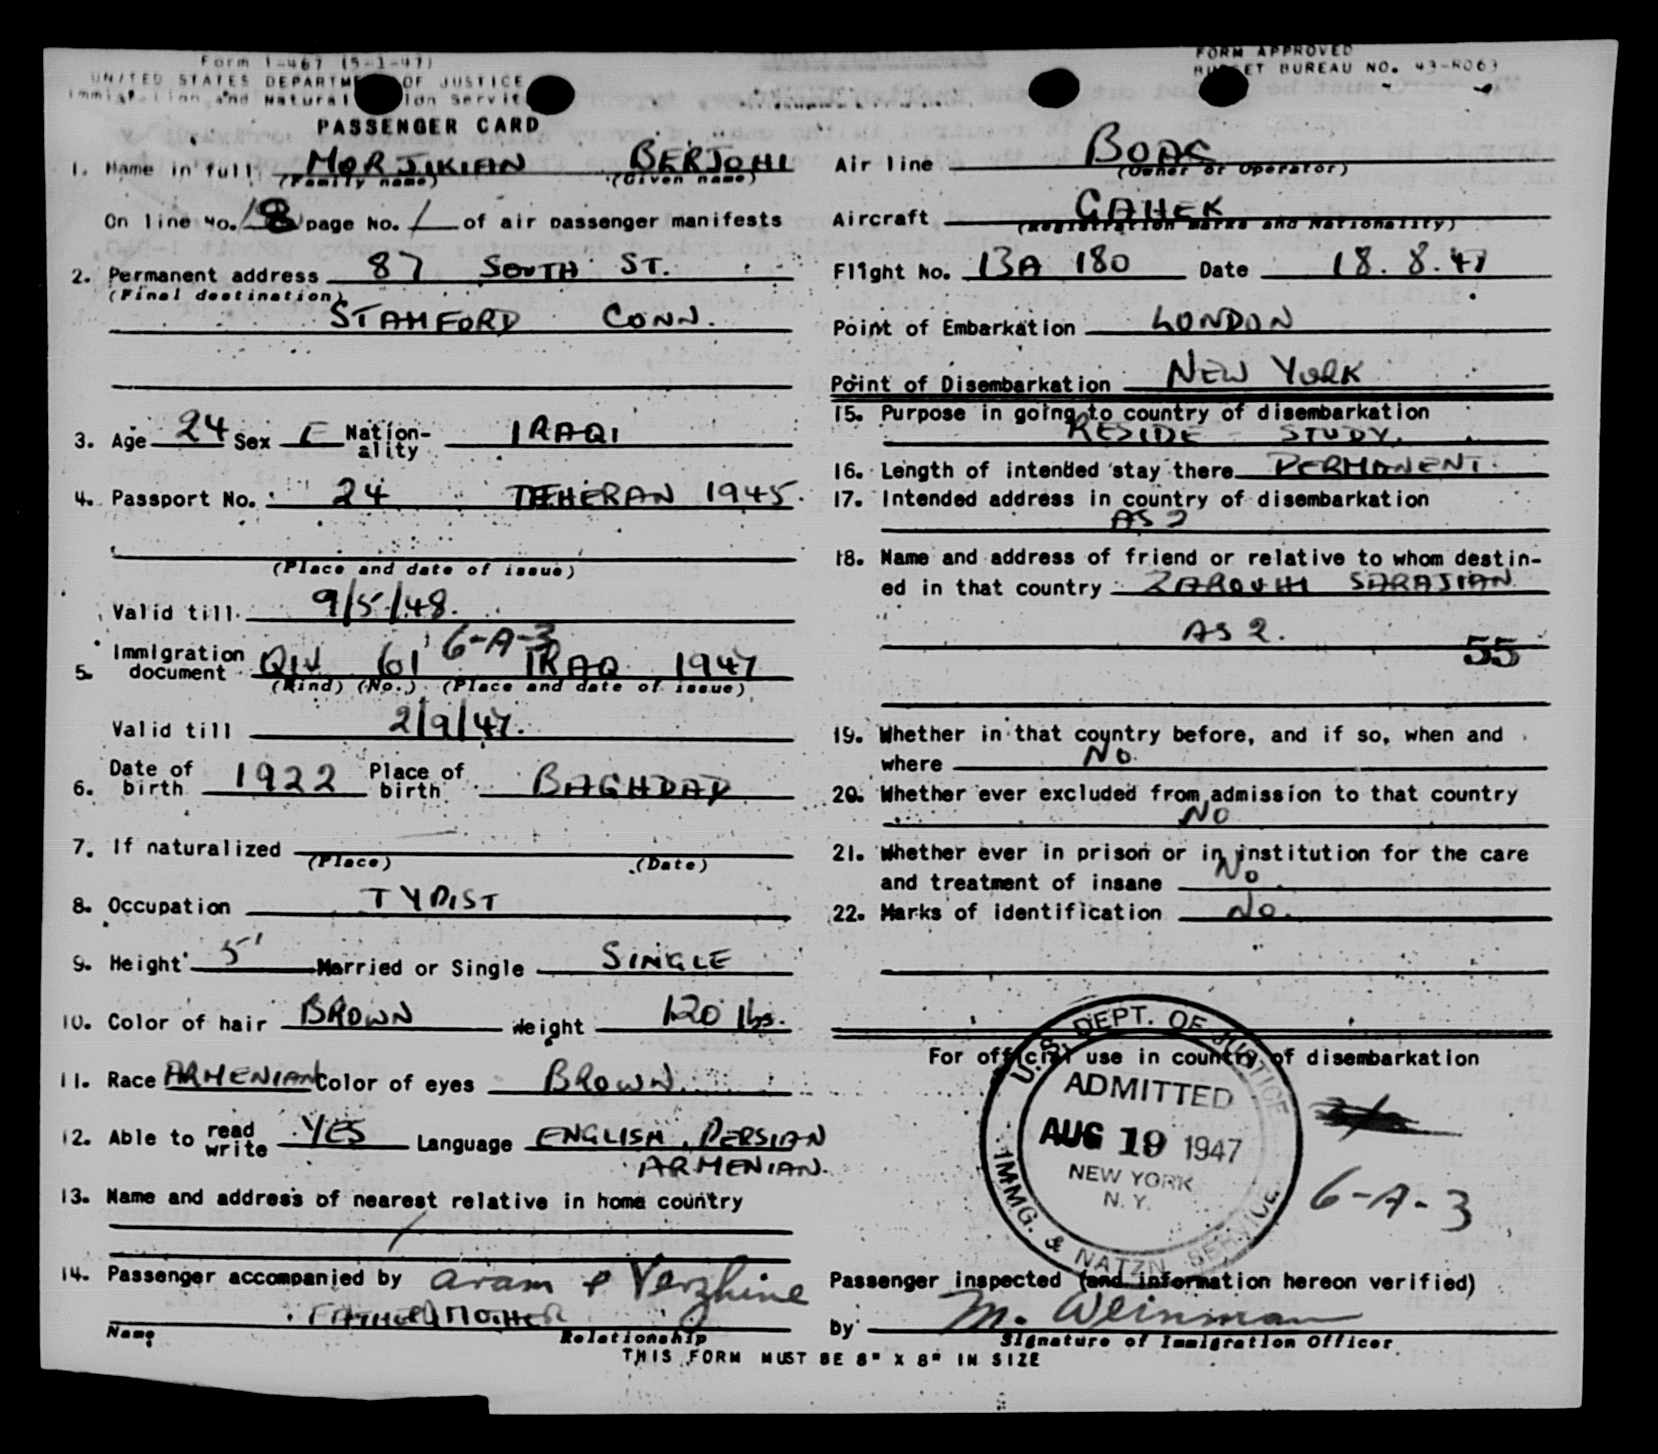 Form I-467 (5-1-47)
UNITED STATES DEPARTMENT OF JUSTICE
Immigration and Naturalization Service
PASSENGER CARD
FORM APPROVED
BUDGET BUREAU NO. 43-R063
1. Name in full MORJIKIAN BERJOHI
(Family name) (Given name)
On line No. 8 page No. 1 of air passenger manifests
2. Permanent address 87 SOUTH ST.
(Final destination)
STAMFORD CONN.
3. Age 24 Sex F Nation-ality IRAQI
4. Passport No. 24 TEHERAN 1945.
(Place and date of issue)
Valid till 9/5/48.
6-A-3
5. Immigration document QIV 61 IRAQ 1947
(Kind) (No.) (Place and date of issue)
Valid till 2/9/47.
6. Date of birth 1922 Place of birth BAGHDAD
7. If naturalized
(Place) (Date)
8. Occupation TYPIST
9. Height 5' Married or Single SINGLE
10. Color of hair BROWN Weight 120 lbs.
11. Race ARMENIAN Color of eyes BROWN
12. Able to read write YES Language ENGLISH, PERSIAN
ARMENIAN.
13. Name and address of nearest relative in home country
14. Passenger accompanied by Aram & Verzhine
FATHER/MOTHER
Name Relationship
Air line BOAC
(Owner or Operator)
Aircraft GAHEK
(Registration marks and Nationality)
Flight No. BA 180 Date 18.8.47
Point of Embarkation LONDON
Point of Disembarkation NEW YORK
15. Purpose in going to country of disembarkation
RESIDE - STUDY.
16. Length of intended stay there PERMANENT.
17. Intended address in country of disembarkation
AS 2
18. Name and address of friend or relative to whom destin-
ed in that country ZAROUHI SARAJIAN
AS 2.
55
19. Whether in that country before, and if so, when and
where NO.
20. Whether ever excluded from admission to that country
NO
21. Whether ever in prison or in institution for the care
and treatment of insane NO
22. Marks of identification NO.
For official use in country of disembarkation
U.S. DEPT. OF JUSTICE
ADMITTED
AUG 19 1947
NEW YORK
N.Y.
IMMG. & NATZN. SERVICE
6-A-3
Passenger inspected (and information hereon verified)
by M. Weinman
Signature of Immigration Officer
THIS FORM MUST BE 8" X 8" IN SIZE